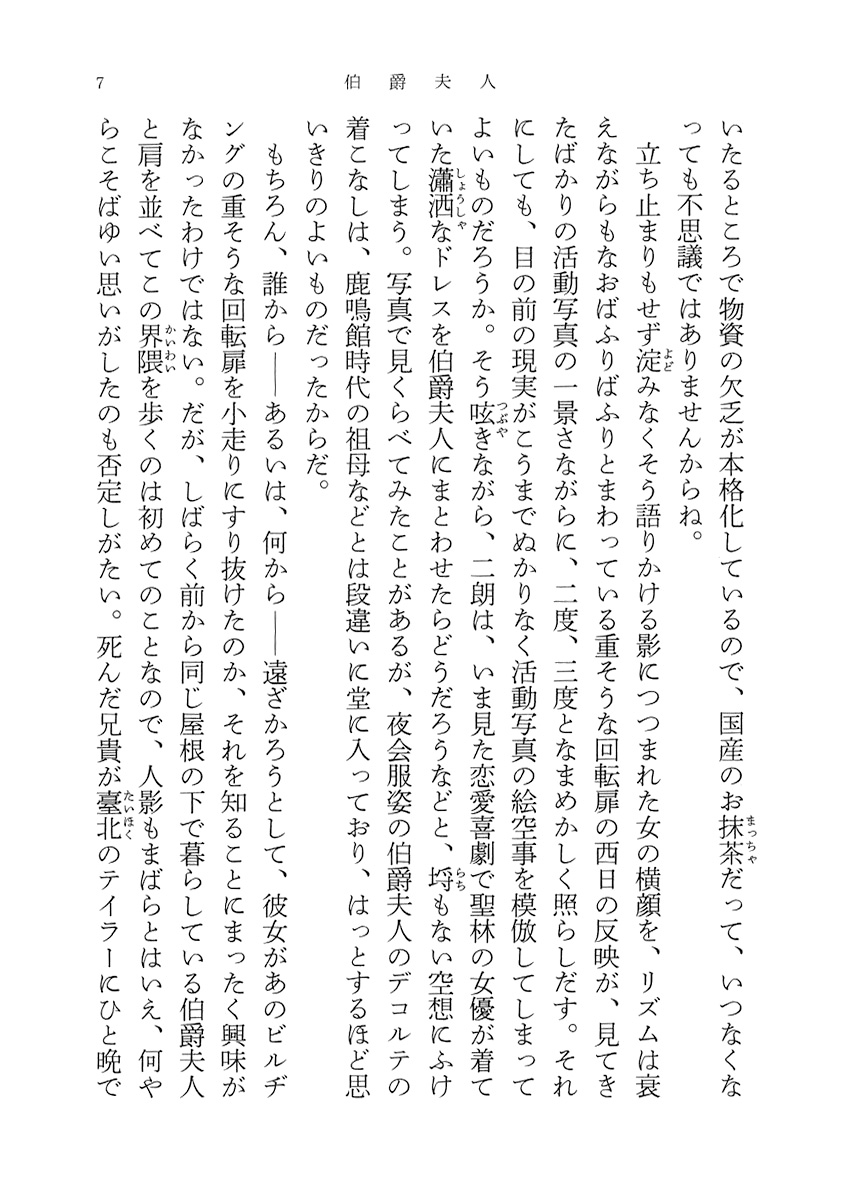 7
伯爵夫人
いたるところで物資の欠乏が本格化しているので、国産のお抹茶だって、いつなくな
まっちゃ
っても不思議ではありませんからね。
立ち止まりもせず淀みなくそう語りかける影につつまれた女の横顔を、リズムは衰
よど
えながらもなおばふりばふりとまわっている重そうな回転扉の西日の反映が、見てき
たばかりの活動写真の一景さながらに、二度、三度となまめかしく照らしだす。それ
にしても、目の前の現実がこうまでぬかりなく活動写真の絵空事を模倣してしまって
よいものだろうか。そう呟きながら、二朗は、いま見た恋愛喜劇で聖林の女優が着て
つぶや
いた瀟洒なドレスを伯爵夫人にまとわせたらどうだろうなどと、埒もない空想にふけ
しょうしゃ
らち
ってしまう。写真で見くらべてみたことがあるが、夜会服姿の伯爵夫人のデコルテの
着こなしは、鹿鳴館時代の祖母などとは段違いに堂に入っており、はっとするほど思
いきりのよいものだったからだ。
もちろん、誰から――あるいは、何から――遠ざかろうとして、彼女があのビルヂ
ングの重そうな回転扉を小走りにすり抜けたのか、それを知ることにまったく興味が
なかったわけではない。だが、しばらく前から同じ屋根の下で暮らしている伯爵夫人
と肩を並べてこの界隈を歩くのは初めてのことなので、人影もまばらとはいえ、何や
かいわい
らこそばゆい思いがしたのも否定しがたい。死んだ兄貴が臺北のテイラーにひと晩で
たいほく